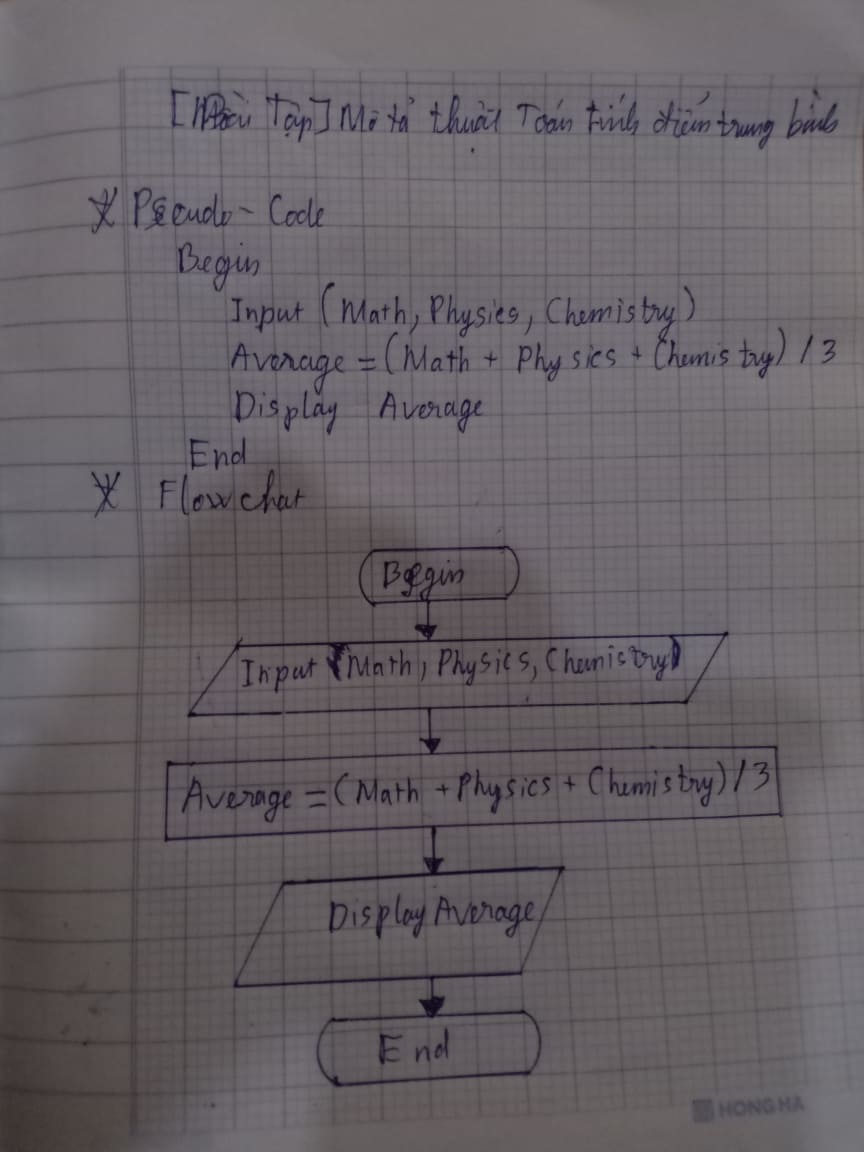 [Bài Tập] Mô tả thuật Toán tính điểm trung bình
* Pseudo - Code
Begin
Input (Math, Physics, Chemistry)
Average = (Math + Physics + Chemistry) / 3
Display Average
End
* Flowchat
Begin
Input (Math, Physics, Chemistry)
Average = (Math + Physics + Chemistry) / 3
Display Average
End
HONG HA